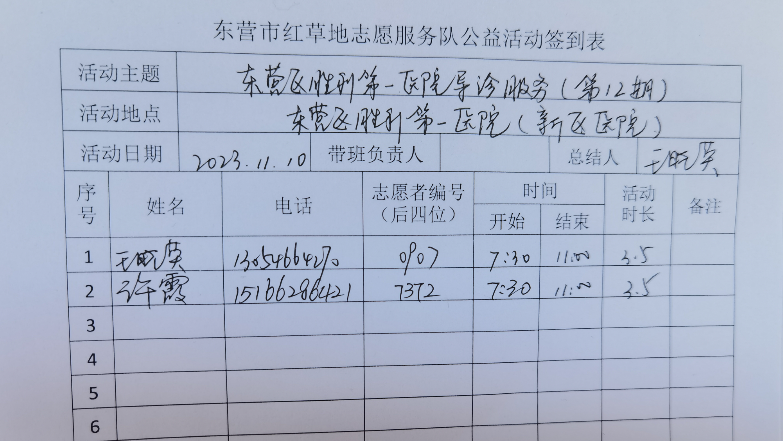 东营市红草地志愿服务队公益活动签到表
活动主题 东营区胜利第一医院导诊服务(第12期)
活动地点 东营区胜利第一医院(新区医院)
活动日期 2023.11.10 带班负责人 总结人 王晓英
序号 姓名 电话 志愿者编号(后四位) 时间 开始 结束 活动时长 备注
1 王晓英 0907 7:30 11:00 3.5
2 许霞 15166286421 7372 7:30 11:00 3.5
3
4
5
6